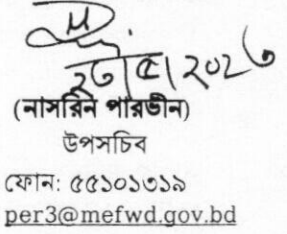 ২৩/৫/২০২৩
(নাসরিন পারভীন)
উপসচিব
ফোন: ৫৫১০১৩১৯
per3@mefwd.gov.bd